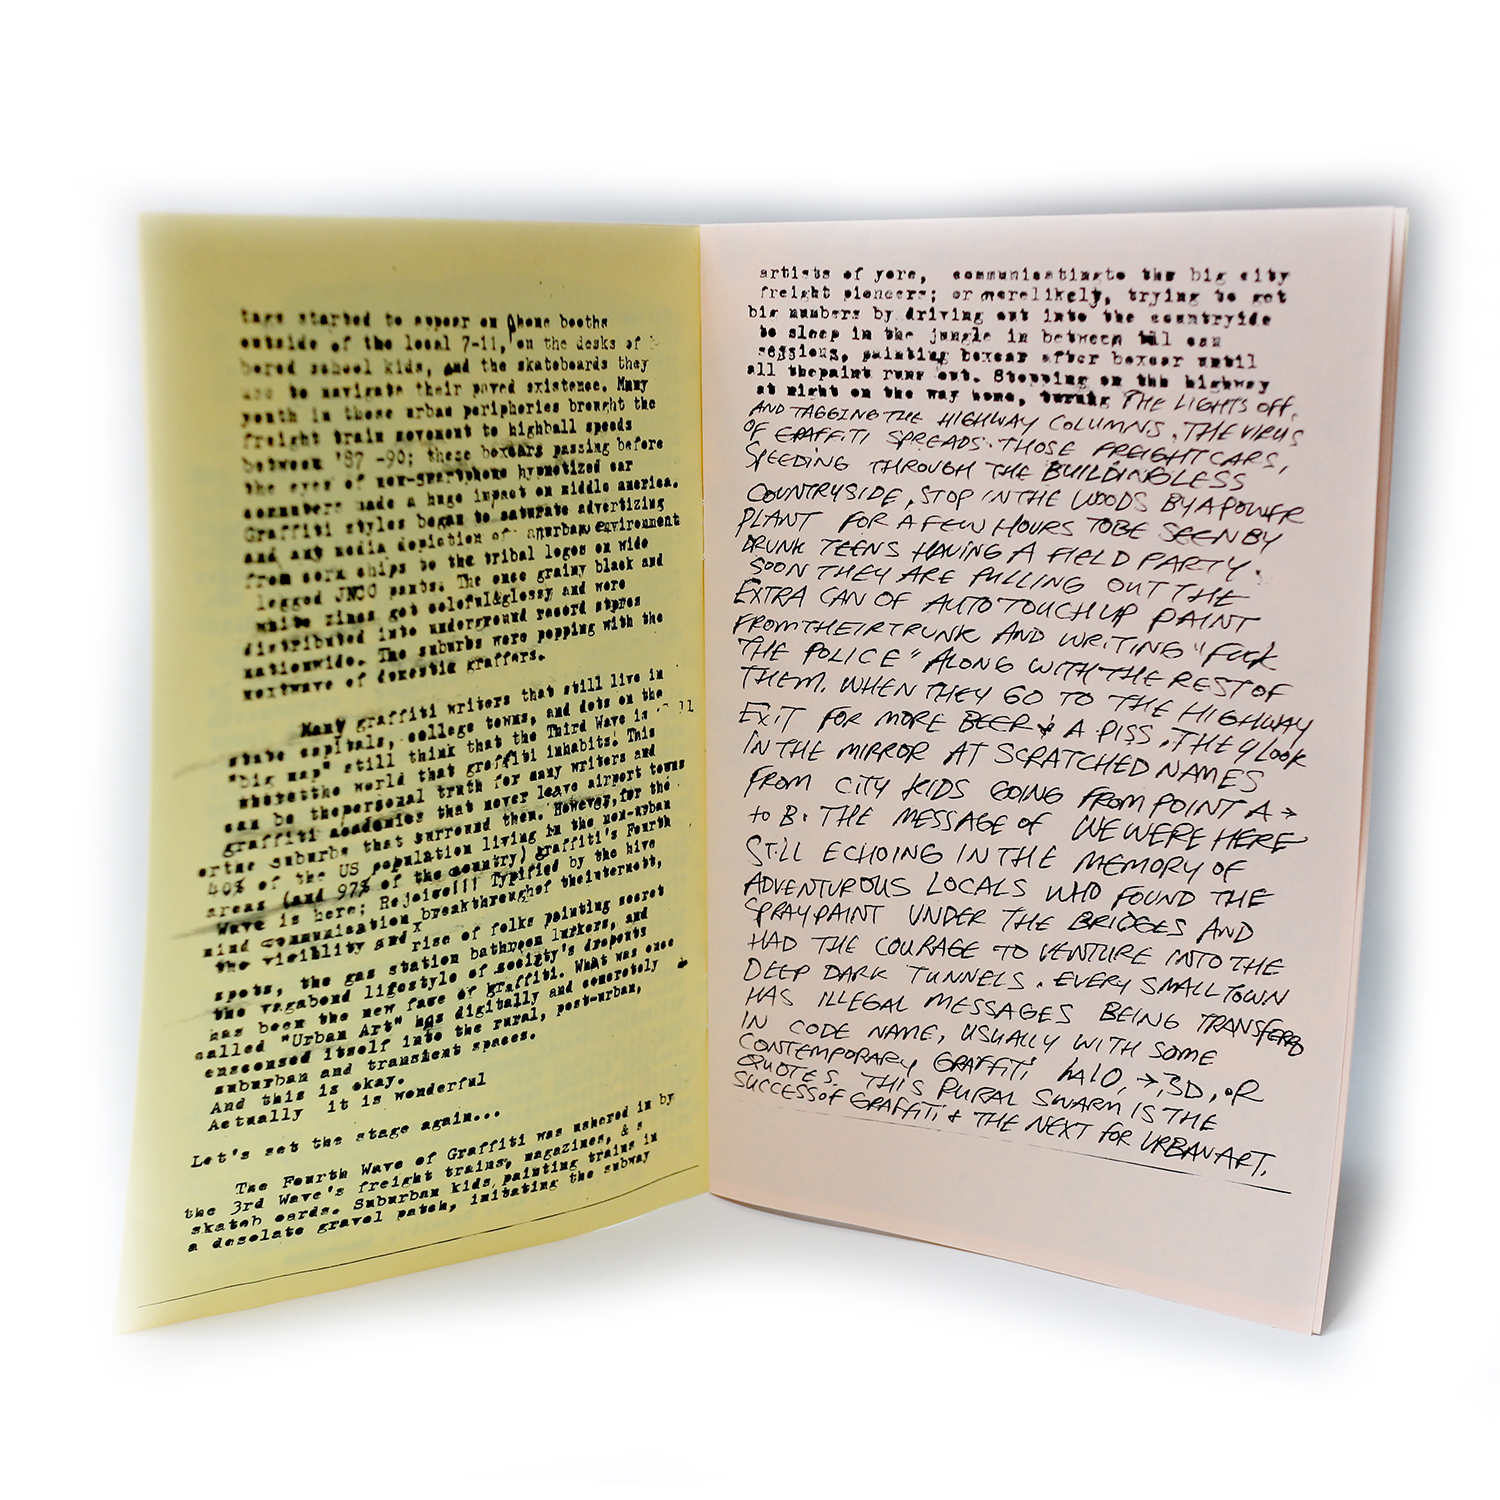 tags started to appear on phone booths
outside of the local 7-11, on the desks of
bored school kids, and the skateboards they
use to navigate their paved existence. Many
youth in these urban peripheries brought the
freight train movement to highball speeds
between '87 -90; these boxcars passing before
the eyes of non-smartphone hypnotized car
commuters made a huge impact on middle america.
Graffiti styles began to saturate advertizing
and any media depiction of anurban environment
from corn chips to the tribal logos on wide
legged JNCO pants. The once grainy black and
white zines got coloful&glossy and were
distributed into underground record stores
nationwide. The suburbs were popping with the
nextwave of domestic graffers.
Many graffiti writers that still live in
state capitals, college towns, and dots on the
"big map" still think that the Third Wave is
the world that graffiti inhabits. This
can be thepersonal truth for many writers and
graffiti academics that never leave airport towns
orthe suburbs that surround them. However, for the
40% of the US population living in the non-urban
areas (and 97% of the country) graffiti's Fourth
Wave is here; Rejoice!!! Typified by the hive
mind communication breakthroughof theinternett,
the visiblity and rise of folks painting secret
spots, the gas station bathroom lurkers, and
the vagabond lifestyle of society's dropouts
has been the new face of graffiti. What was once
called "Urban Art" has digitally and concretely
ensconsed itself into the rural, post-urban,
suburban and transient spaces.
And this is okay.
Actually it is wonderful
Let's set the stage again...
The Fourth Wave of Graffiti was ushered in by
the 3rd Wave's freight trains, magazines, & s
skateb oards. Suburban kids, painting trains in
a desolate gravel patch, imitating the subway
artists of yore, communicatingto the big city
freight pioneers; or morelikely, trying to get
big numbers by driving out into the countryide
to sleep in the jungle in between tall can
sessions, painting boxcar after boxcar until
all thepaint runs out. Stopping on the highway
at night on the way home, turning THE LIGHTS OFF,
AND TAGGING THE HIGHWAY COLUMNS. THE VIRUS
OF GRAFFITI SPREADS. THOSE FREIGHT CARS,
SPEEDING THROUGH THE BUILDINGLESS
COUNTRYSIDE, STOP IN THE WOODS BY A POWER
PLANT FOR A FEW HOURS TO BE SEEN BY
DRUNK TEENS HAVING A FIELD PARTY.
SOON THEY ARE PULLING OUT THE
EXTRA CAN OF AUTO TOUCH UP PAINT
FROM THEIR TRUNK AND WRITING "FUCK
THE POLICE" ALONG WITH THE REST OF
THEM. WHEN THEY GO TO THE HIGHWAY
EXIT FOR MORE BEER & A PISS. THEY LOOK
IN THE MIRROR AT SCRATCHED NAMES
FROM CITY KIDS GOING FROM POINT A →
to B. THE MESSAGE OF WE WERE HERE
STILL ECHOING IN THE MEMORY OF
ADVENTUROUS LOCALS WHO FOUND THE
SPRAYPAINT UNDER THE BRIDGES AND
HAD THE COURAGE TO VENTURE INTO THE
DEEP DARK TUNNELS. EVERY SMALL TOWN
HAS ILLEGAL MESSAGES BEING TRANSFERED
IN CODE NAME, USUALLY WITH SOME
CONTEMPORARY GRAFFITI HALO, →, 3D, OR
QUOTES. THIS RURAL SWARM IS THE
SUCCESS OF GRAFFITI & THE NEXT FOR URBAN ART.